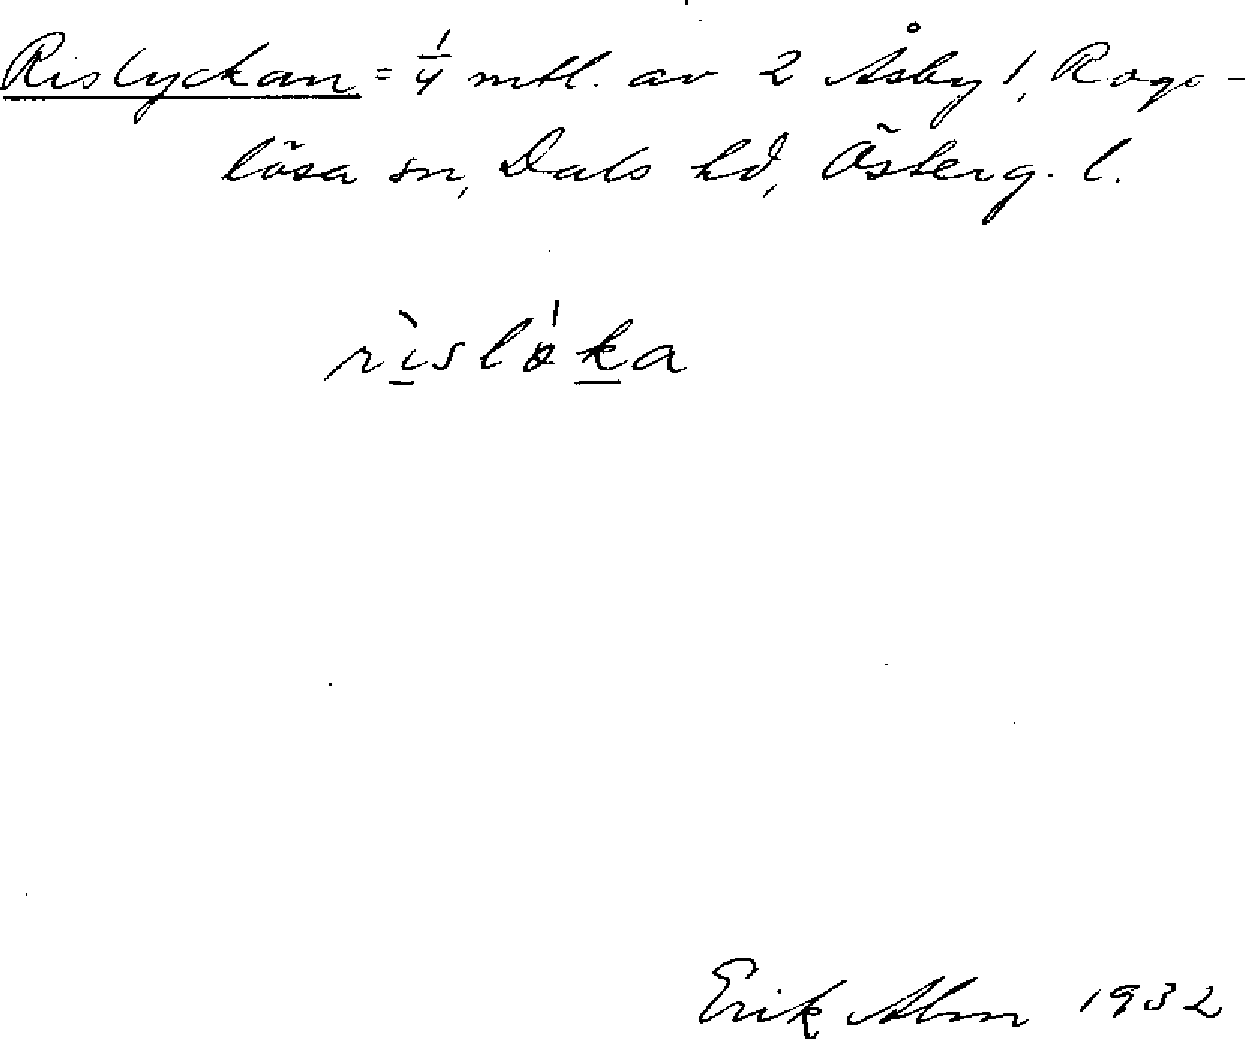 Rislyckan = 1/4 mtl. av 2 Åsby 1, Rogs-
lösa sn, Dals hd, Österg. l.
rìsløka
Erik Alm 1932